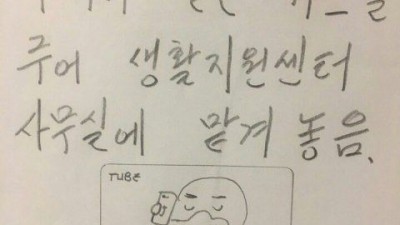 주어 생활지원센터
사무실에 맡겨 놓음.
TUBE